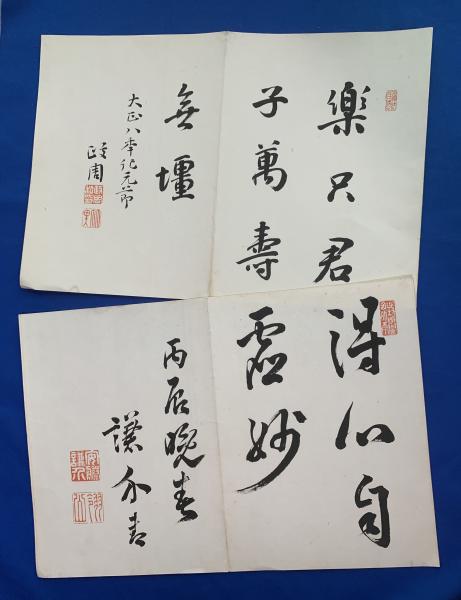 樂只君
子萬壽
無壃
大正八年紀元節
得心自
虛妙
丙辰晩春
謙介書